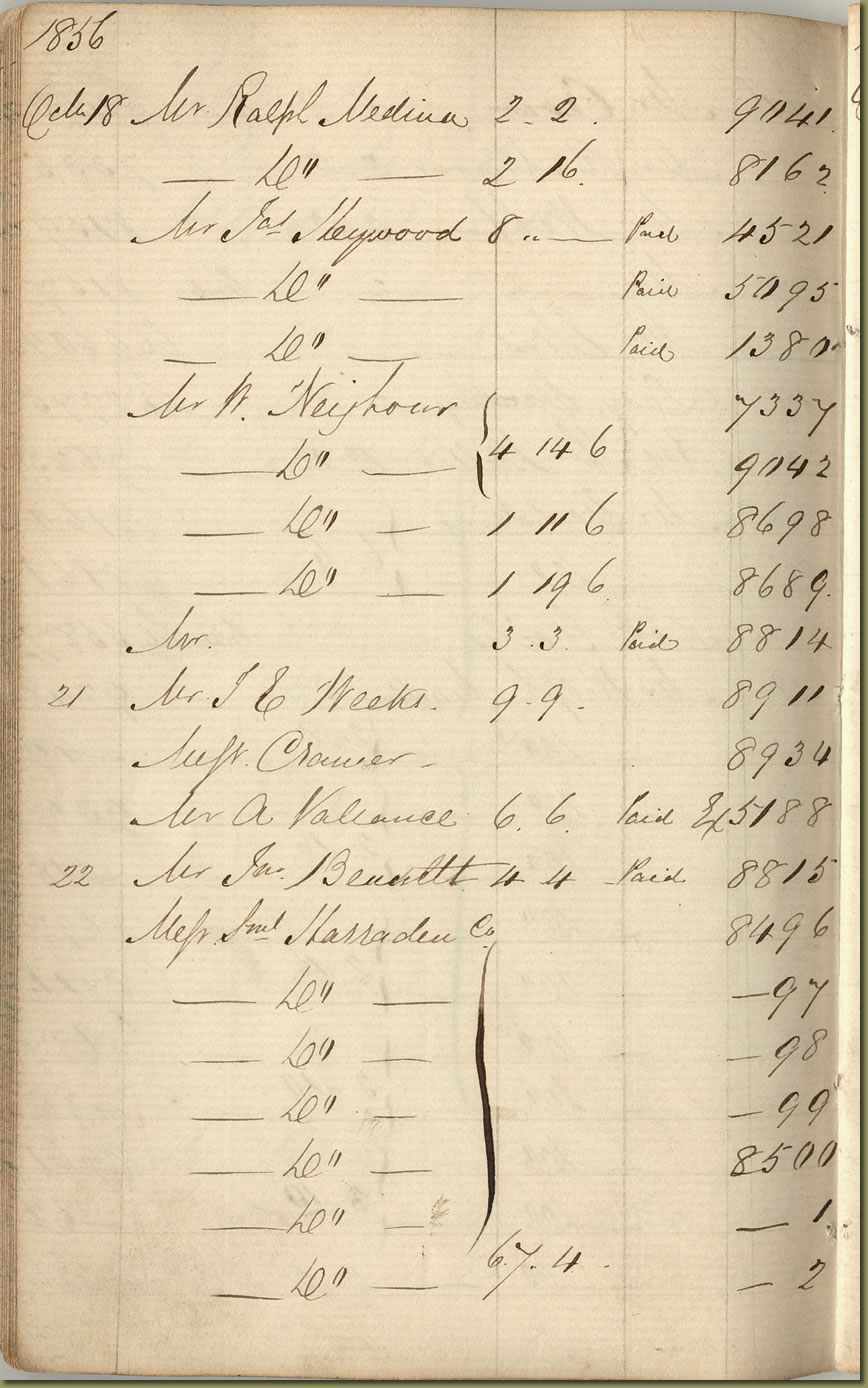 1856
Octr 18 Mr Ralph Medina 2 . 2 . 9041
— Do " — 2 16. 8162
Mr Jas Heywood 8 " — Paid 4521
— Do " — Paid 5095
— Do " — Paid 1380
Mr W. Neighbour 7337
— Do " — 4 14 6 9042
— Do " — 1 11 6 8698
— Do " — 1 19 6 8689.
Mr. 3 . 3. Paid 8814
21 Mr J E Weeks. 9 . 9 . 8911
Messr. Cramer - 8934
Mr A Vallance 6. 6. Paid Ex 5188
22 Mr Jno. Bennett 4 4 Paid 8815
Messr. Saml Harraden Co 8496
— Do " — — 97
— Do " — — 98
— Do " — — 99
— Do " — 8500
— Do " — — 1
— Do " — 67. 4 . — 2